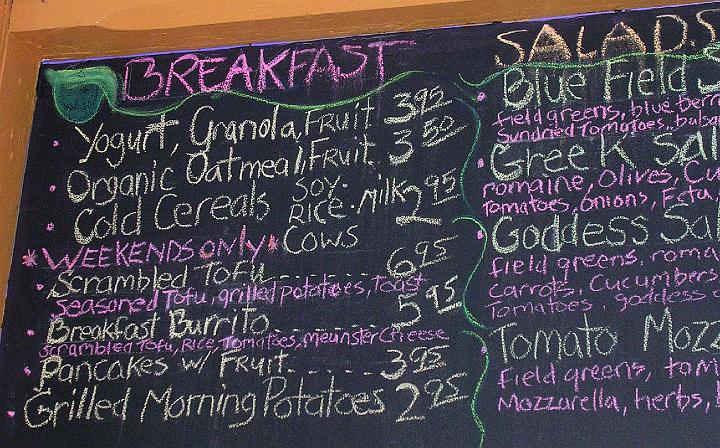 BREAKFAST
Yogurt, Granola, Fruit 3.95
Organic Oatmeal, Fruit 3.50
Cold Cereals Soy. Rice. Milk 2.95
Cows
*WEEKENDS ONLY*
Scrambled Tofu 6.95
Seasoned Tofu, grilled potatoes, Toast
Breakfast Burrito 5.95
Scrambled Tofu, Rice, Tomatoes, meunster Cheese
Pancakes w/ Fruit 3.95
Grilled Morning Potatoes 2.95
SALADS
Blue Field
field greens, blue
Sundried Tomatoes,
Greek
romaine, Olives,
Tomatoes, Onions,
Goddess
field greens,
Carrots, Cucumbers
Tomatoes, goddess
Tomato
Field greens,
Mozzarella, herbs,